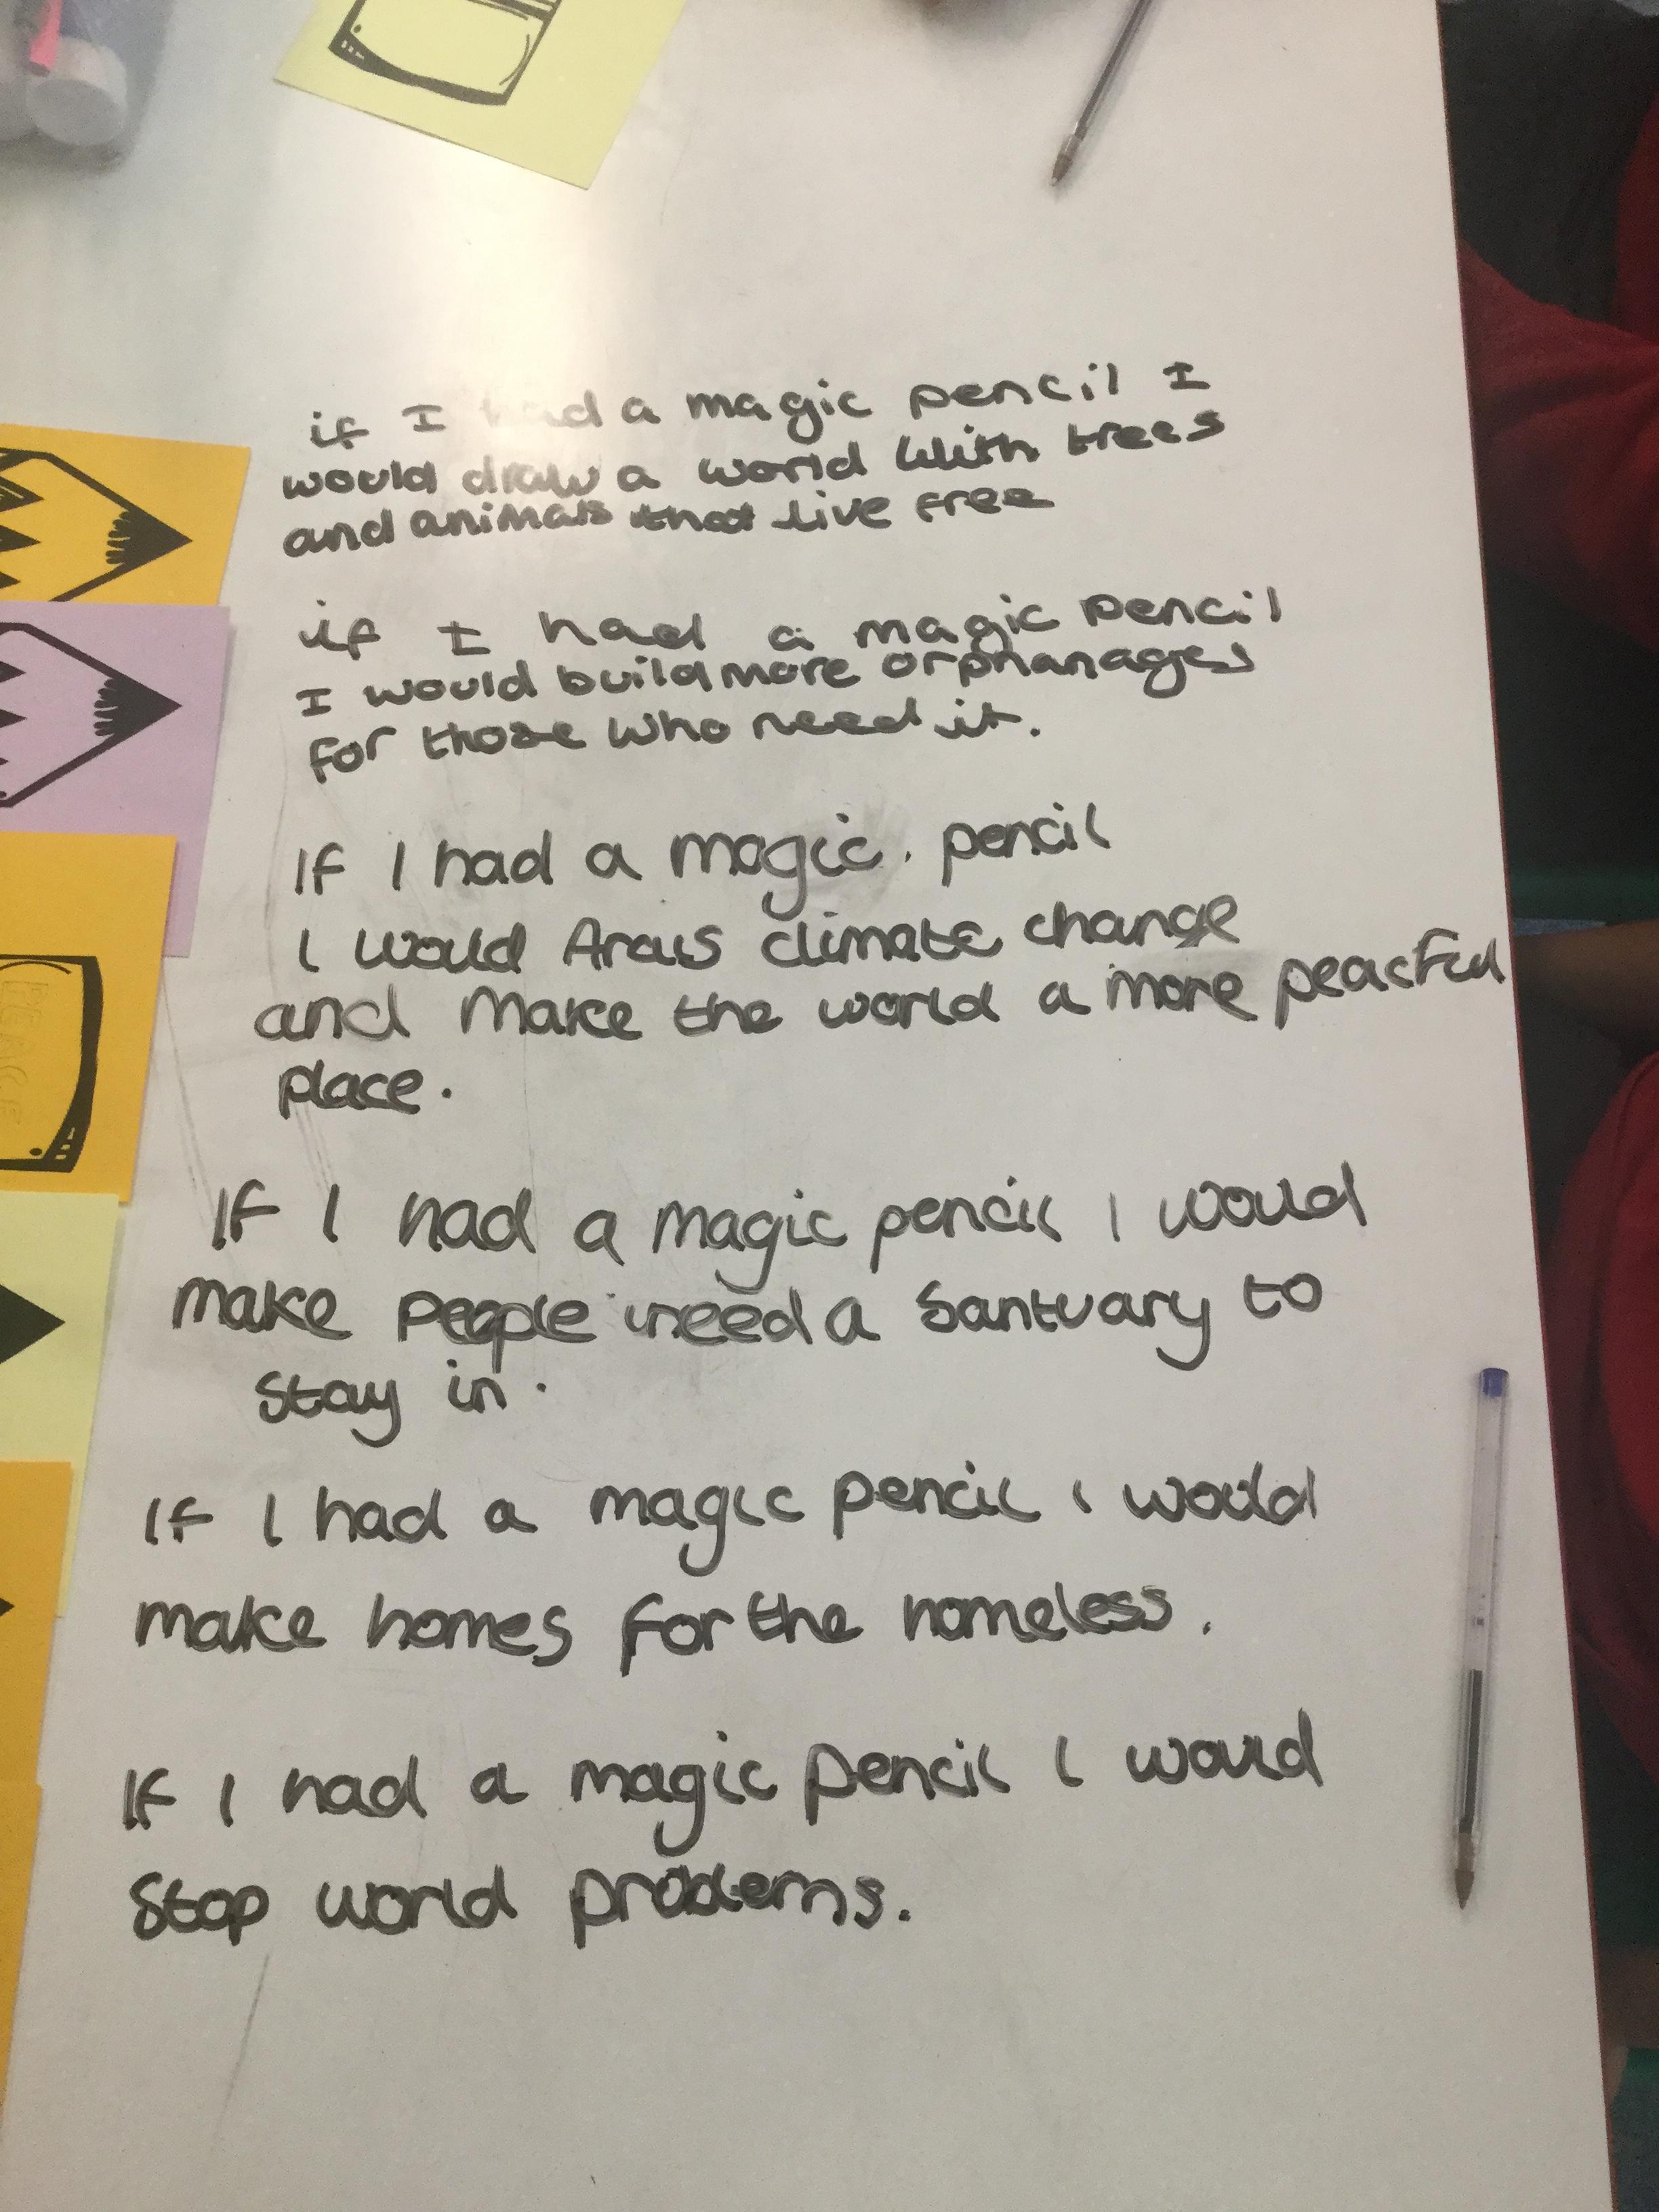 if I had a magic pencil I
would draw a world With trees
and animals that live free
if I had a magic pencil
I would build more orphanages
for those who need it.
If I had a magic. pencil
I would Arais climate change
and Make the world a more peacful
place.
If I had a magic pencil I would
make people need a Santuary to
stay in.
If I had a magic pencil I would
make homes for the homeless.
If I had a magic pencil I would
Stop world problems.
PEACE